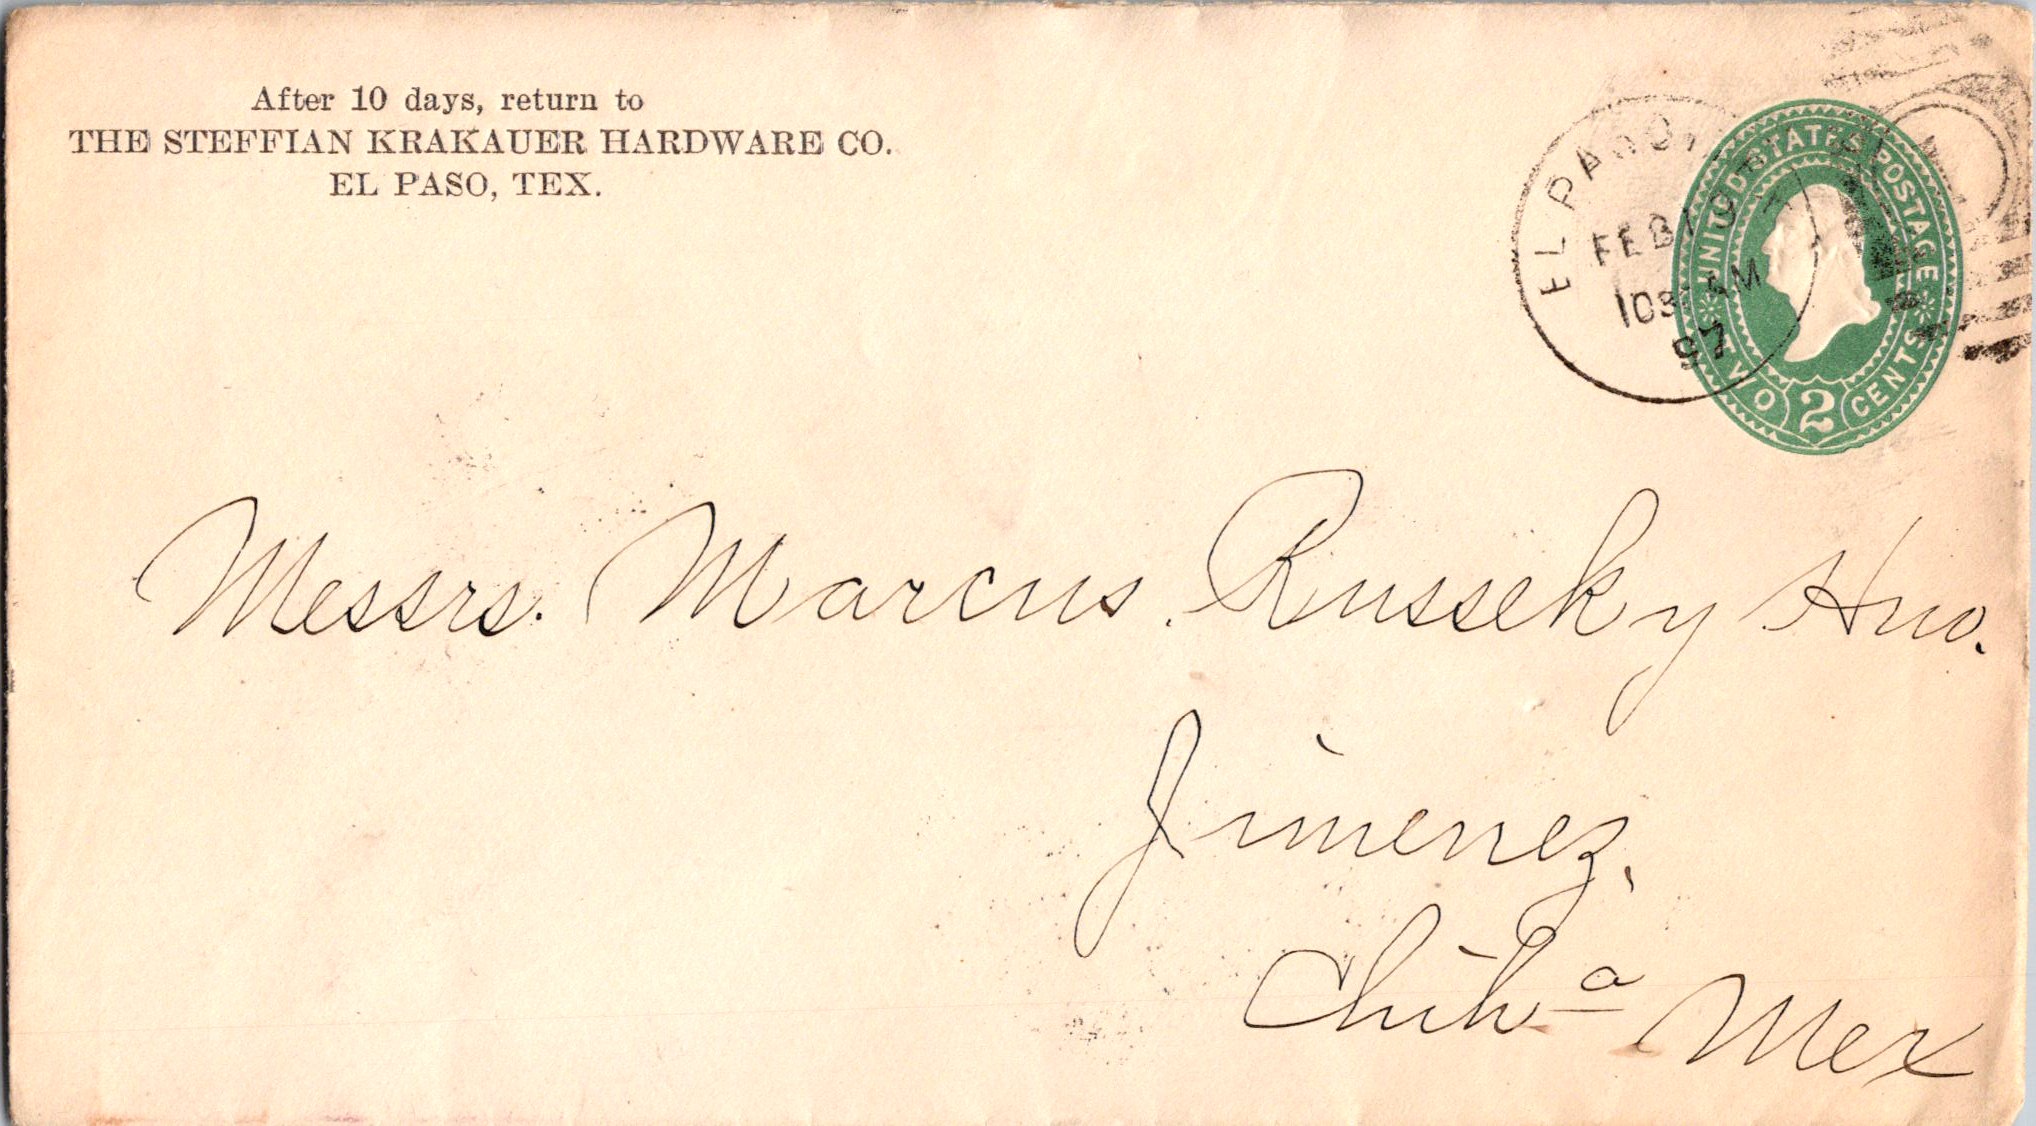 After 10 days, return to
THE STEFFIAN KRAKAUER HARDWARE CO.
EL PASO, TEX.
EL PASO,
FEB
AM
97
UNITED STATES POSTAGE
TWO 2 CENTS
Messrs. Marcus Russek y Hno.
Jimenez,
Chihª Mex